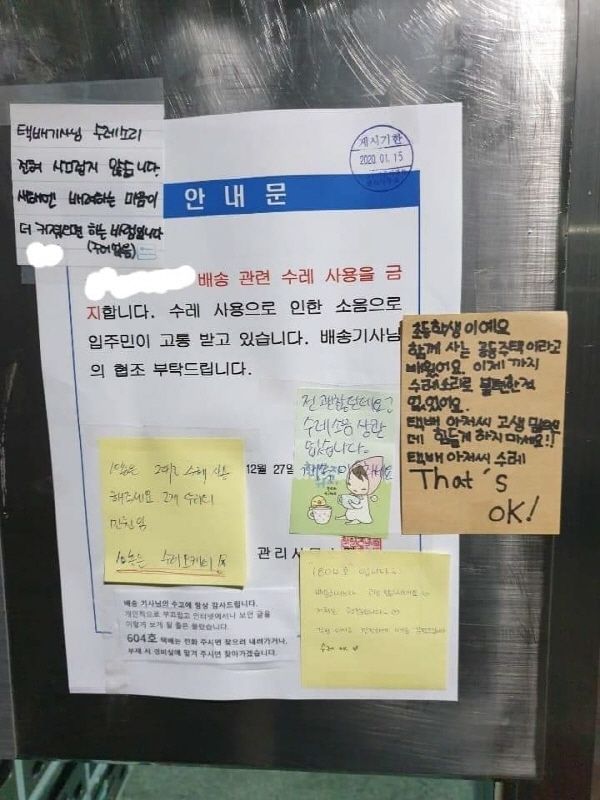 택배기사님 수레소리
전혀 시끄럽지 않습니다.
배려하는 마음이
더 커졌으면 하는 바램입니다
게시기한
2020. 01. 15
안내문
배송 관련 수레 사용을 금
지합니다. 수레 사용으로 인한 소음으로
입주민이 고통 받고 있습니다. 배송기사님
의 협조 부탁드립니다.
12월 27일
관리사무소
초등학생이예요
함께 사는 공동주택이라고
배웠어요. 이제까지
수레소리로 불편한적
없었어요.
택배 아저씨 고생 많으신
데 힘들게 하지 마세요!!
택배 아저씨 수레
That's
OK!
전 괜찮던데요?
수레소음 상관
없습니다.
수레 사용
해주세요.
배송 기사님의 수고에 항상 감사드립니다.
개인적으로 부끄럽고 인터넷에서나 보던 글을
이렇게 보게 될 줄은 몰랐습니다.
604호 택배는 전화 주시면 찾으러 내려가거나,
부재 시 경비실에 맡겨 주시면 찾아가겠습니다.
"1804호" 입니다.
수레 OK ♥